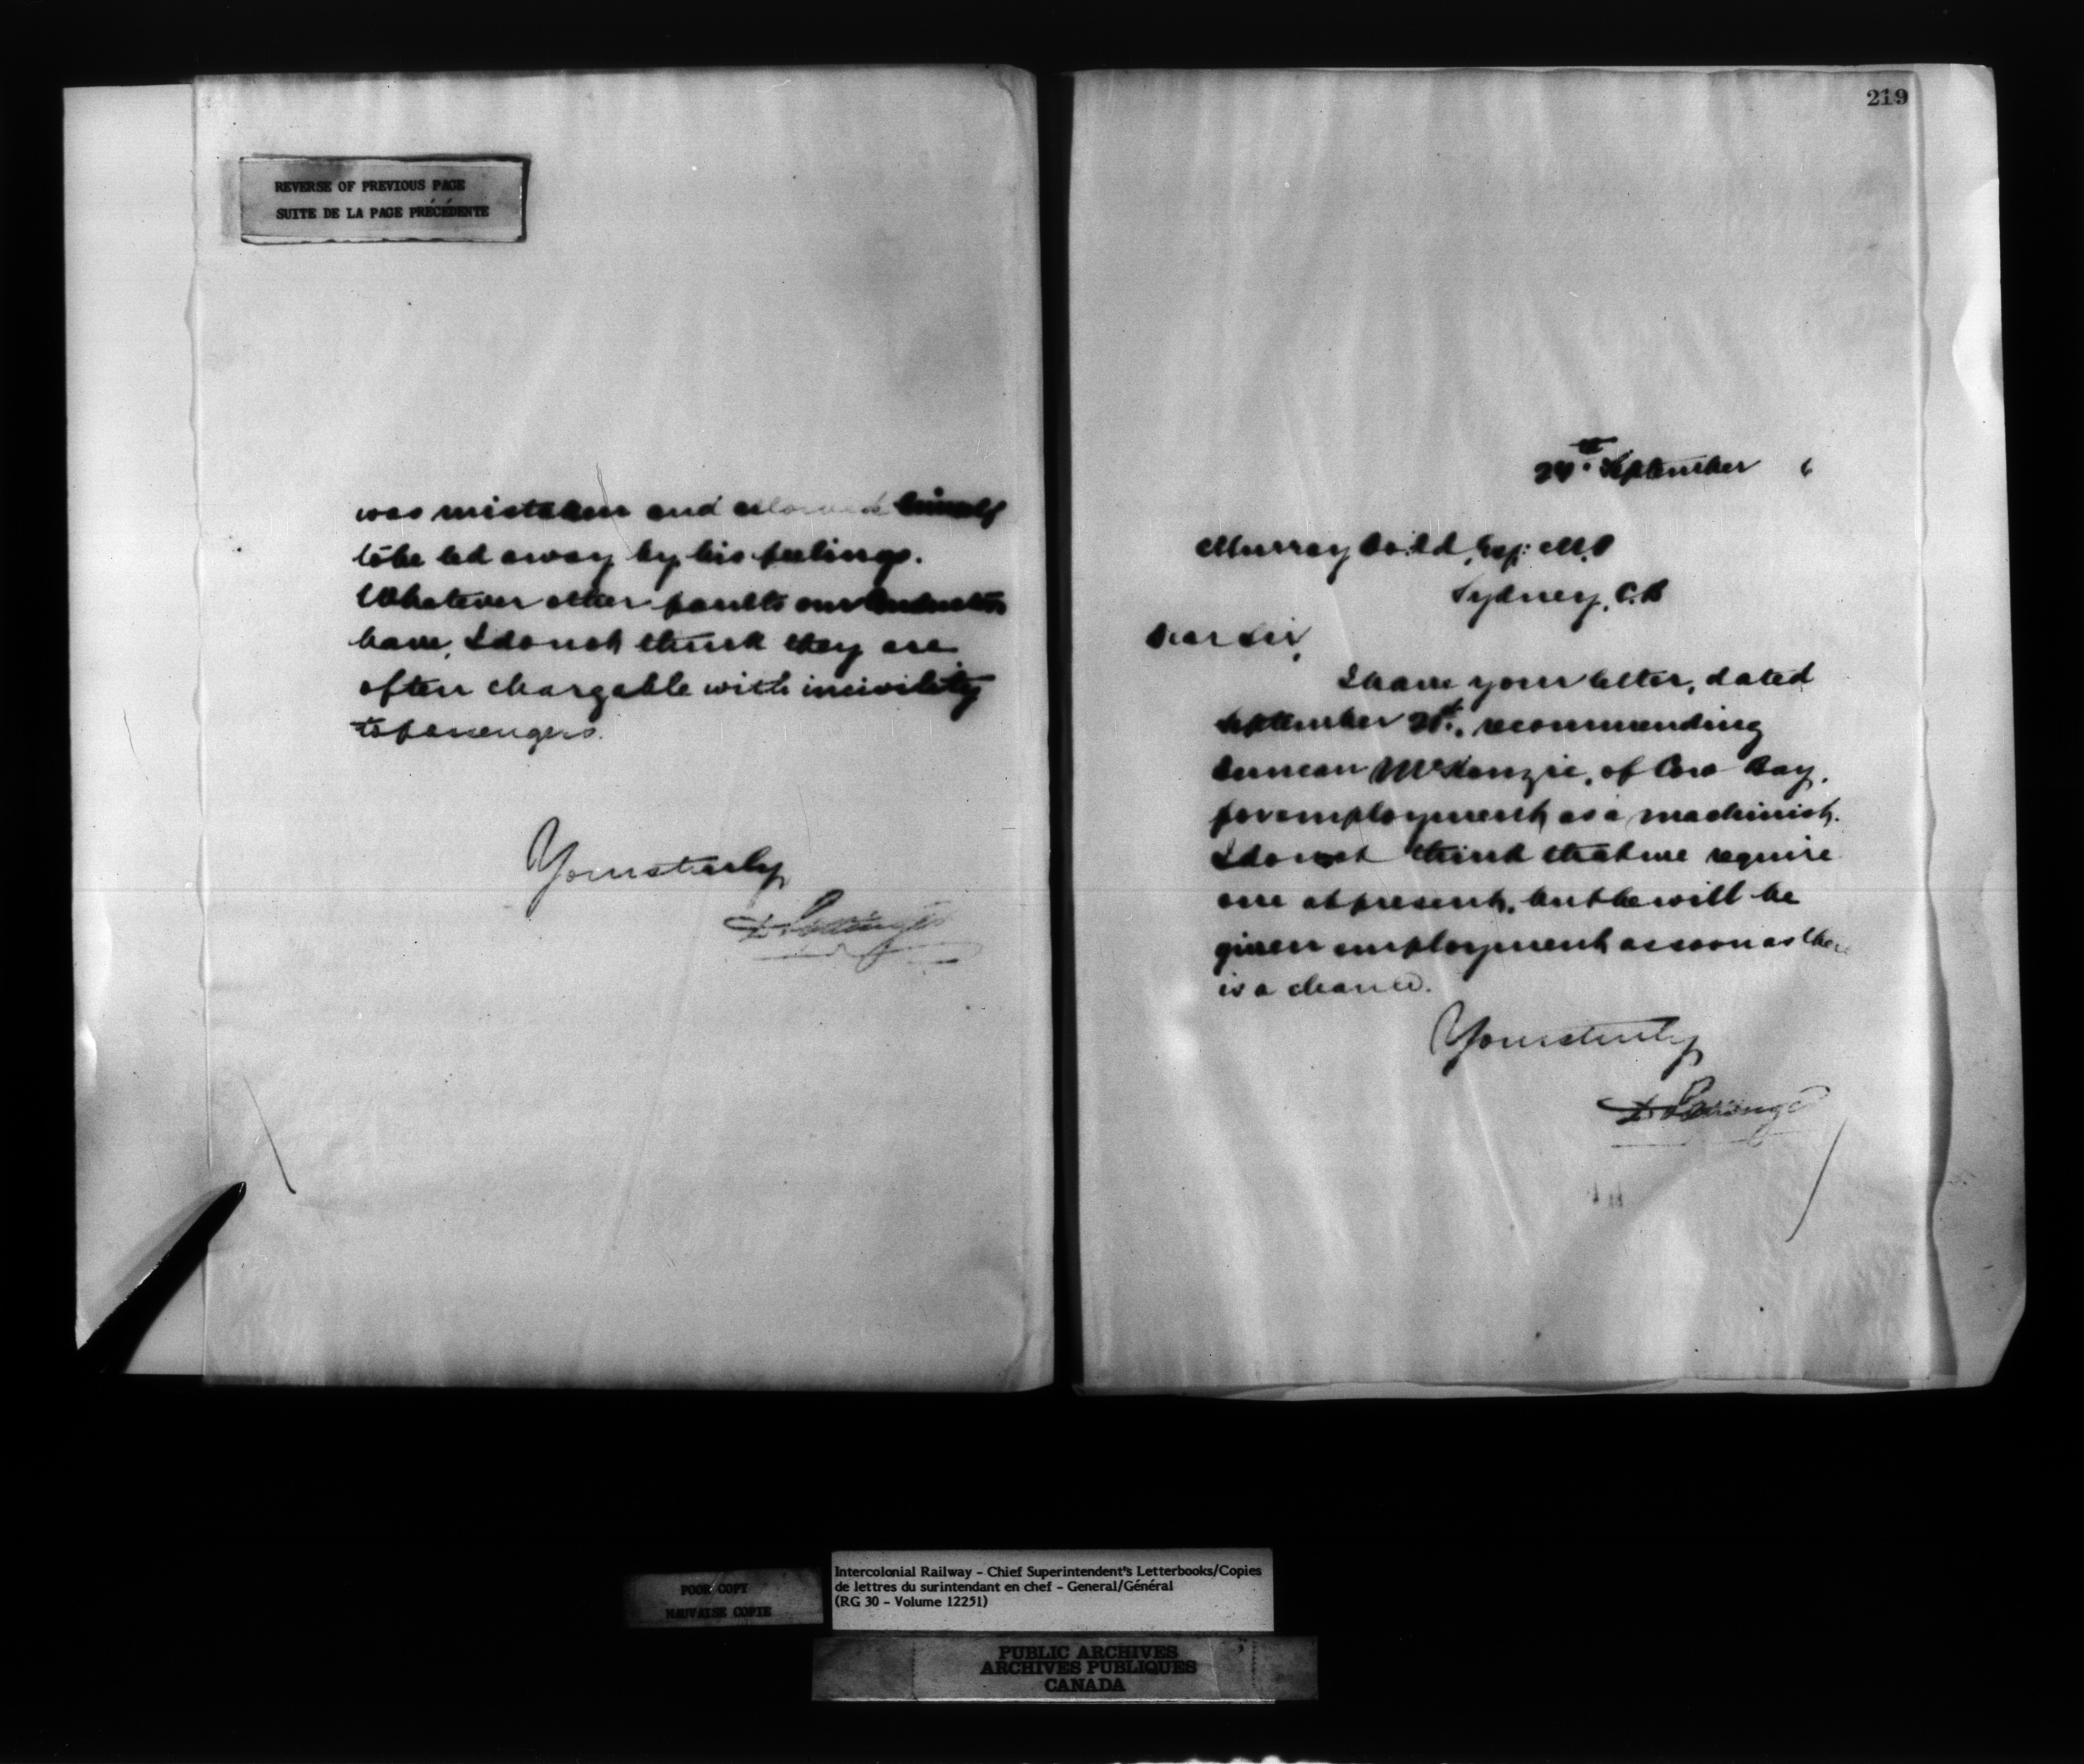 REVERSE OF PREVIOUS PAGE
SUITE DE LA PAGE PRÉCÉDENTE
was mistaken and allowed himself
to be led away by his feelings.
Whatever other faults our Conductors
have, I do not think they are
often chargable with incivility
to passengers.
Yours truly
D. Pottinger
219
24th September 6
Murray Dodd, Esq: M.P
Sydney, C.B
Dear Sir,
I have your letter, dated
September 21st, recommending
Duncan McKenzie, of Cow Bay,
for employment as a machinist.
I do not think that we require
one at present, but he will be
given employment as soon as there
is a chance.
Yours truly
D. Pottinger
POOR COPY
MAUVAISE COPIE
Intercolonial Railway - Chief Superintendent's Letterbooks/Copies
de lettres du surintendant en chef - General/Général
(RG 30 - Volume 12251)
PUBLIC ARCHIVES
ARCHIVES PUBLIQUES
CANADA